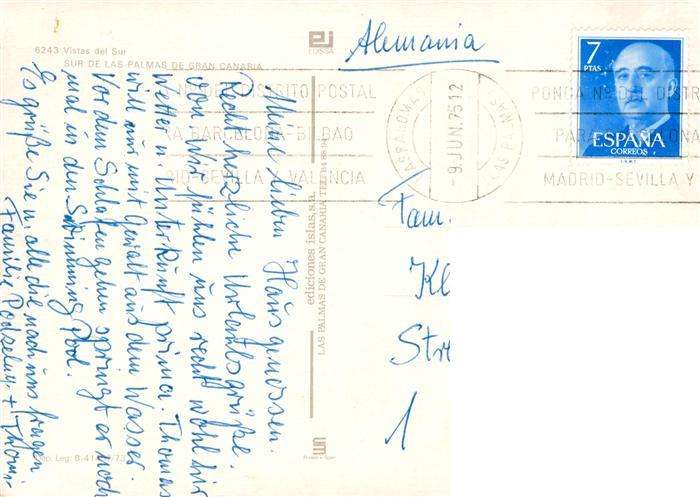 6243 Vistas del Sur
SUR DE LAS PALMAS DE GRAN CANARIA
EDISSA
Alemania
7
PTAS
ESPAÑA
CORREOS
POSTAL
BARCELONA-BILBAO
SEVILLA Y VALENCIA
-9.JUN.75 12
PONGA Nº DEL DISTR
PARA
MADRID-SEVILLA Y
Meine lieben Hausgenossen.
Recht herzliche Urlaubsgrüße
von wir fühlen uns recht wohl hir
Wetter u. Unterkunft prima. Thomas
will nur mit Gewalt aus dem Wasser.
Vor dem Schlafen gehen springt er noch
mal in den Swimming Pool.
Es grüße Sie u. alle die nach uns fragen
Familie + Thomi-
ediciones islas, s.a.
LAS PALMAS DE GRAN CANARIA
Fam.
Kl
Str
1